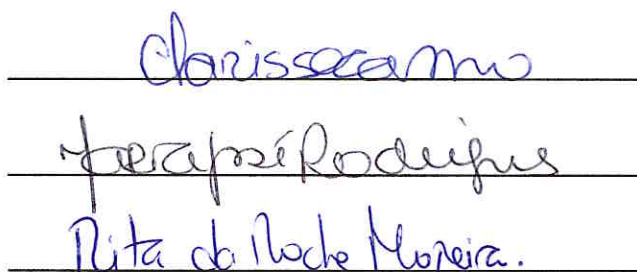 Clarissa Carmo
Rodrigues
Rita da Rocha Moreira.